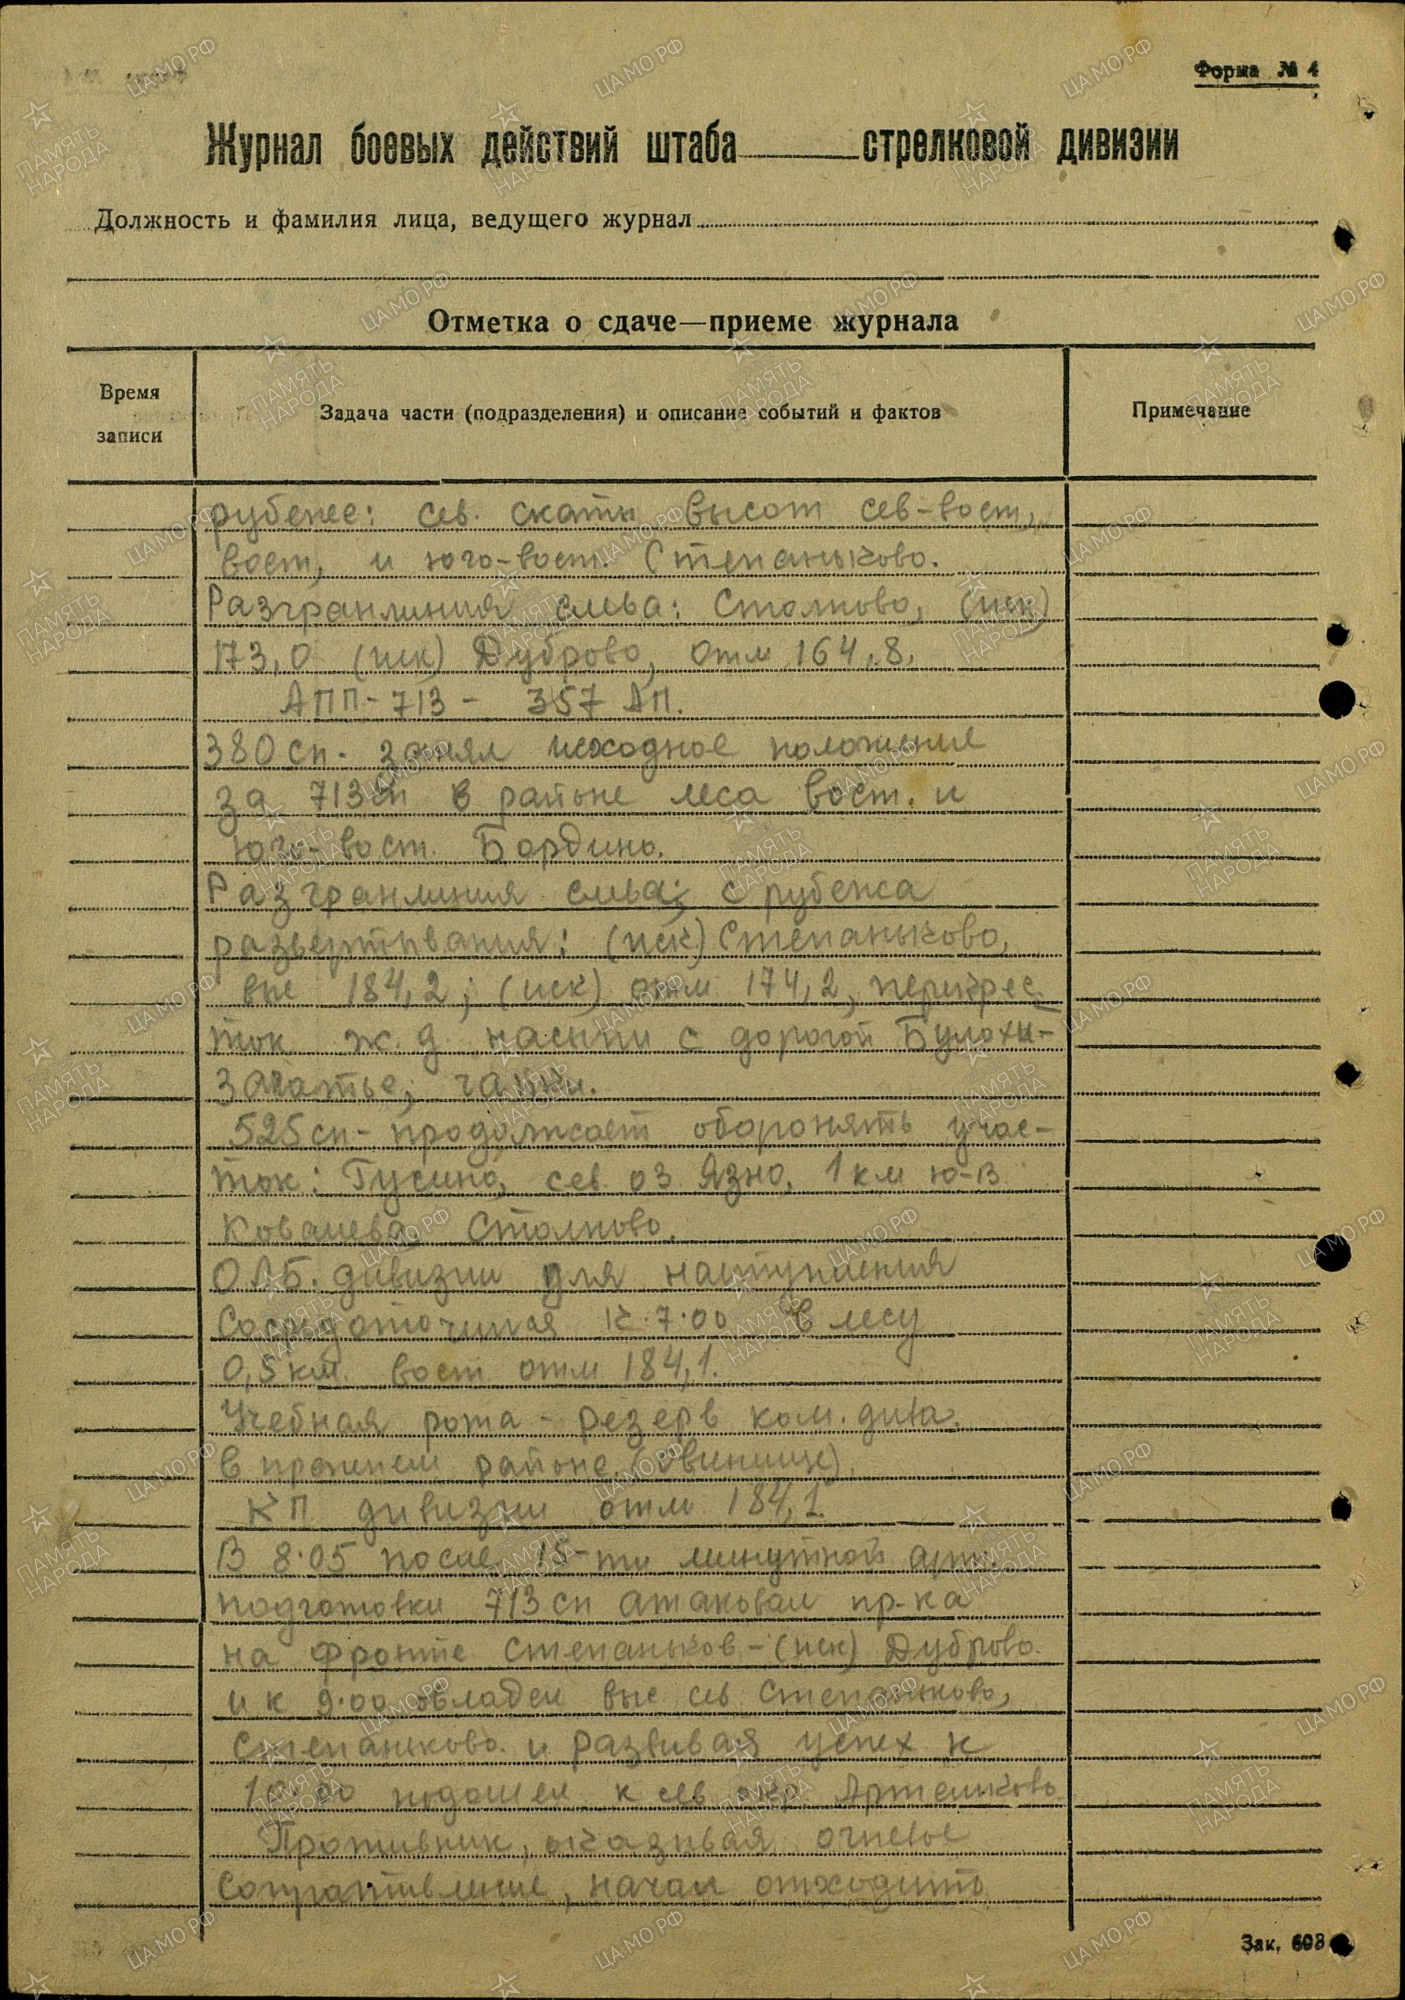 Форма № 4
Журнал боевых действий штаба стрелковой дивизии
Должность и фамилия лица, ведущего журнал
Отметка о сдаче—приеме журнала
Время записи
Задача части (подразделения) и описание событий и фактов
Примечание
рубеже: сев. скаты высот сев-вост,
вост, и юго-вост. Степаньково.
Разгранлиния слева: Столпово, (иск)
173,0 (иск) Дуброво, отм 164,8,
АПП-713 - 357 АП.
380 сп. занял исходное положение
за 713 сп в районе леса вост. и
юго-вост. Бордино.
Разгранлиния слева; с рубежа
развертывания: (иск) Степаньково,
выс 184,2; (иск) отм 174,2, перекрес
ток ж.д насыпи с дорогой Булохи-
Зачатье,
525 сп - продолжает оборонять учас-
ток: Гусино, сев оз Язно, 1 км ю-в
Ковалева, Столпово.
ОЛБ. дивизии для наступления
сосредоточился к 7.00 в лесу
0,5 км. вост отм 184,1.
Учебная рота - резерв ком. дива.
в прежнем районе. (Овинище).
КП дивизии отм 184,1.
В 8.05 после 15-ти минутной арт.
подготовки 713 сп атаковал пр-ка
на фронте Степаньков - (иск) Дуброво.
и к 9.00 овладел выс сев Степаньково,
Степаньково. и развивая успех к
10.00 подошел к сев окр Артейково
Противник, оказывая огневое
сопративление, начал отходить
Зак. 608
ЦАМО.РФ
ПАМЯТЬ НАРОДА